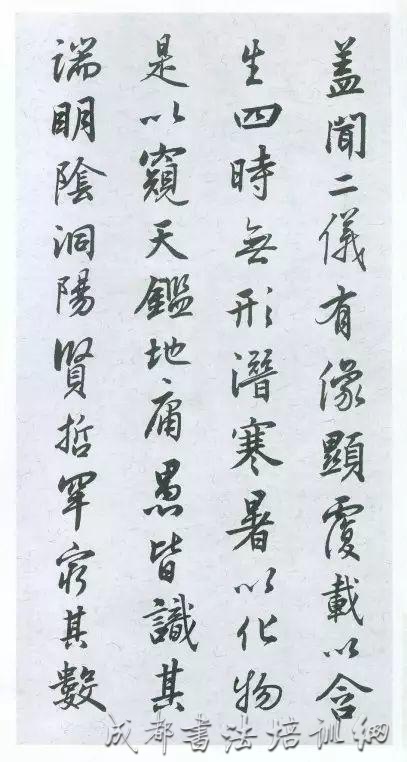 盖聞二儀有像顯覆載以含
生四時無形潛寒暑以化物
是以窺天鑑地庸愚皆識其
端明陰洞陽賢哲罕窮其數
成都書法培訓網